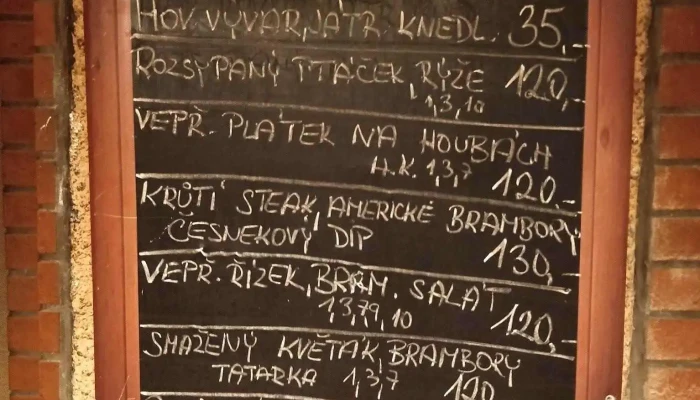 HOV.VÝVAR,JÁTR. KNEDL. 35,-
ROZSYPANÝ PTÁČEK, RÝŽE 120,-
1,3,10
VEPŘ. PLÁTEK NA HOUBÁCH
H.K. 1,3,7 120,-
KRŮTÍ STEAK, AMERICKÉ BRAMBORY
ČESNEKOVÝ DIP 130,-
VEPŘ. ŘÍZEK, BRAM. SALÁT
1,3,7,9,10 120,-
SMAŽENÝ KVĚTÁK, BRAMBORY
TATARKA 1,3,7 120